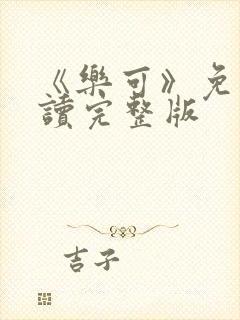 《樂可》免
讀完整版
吉子